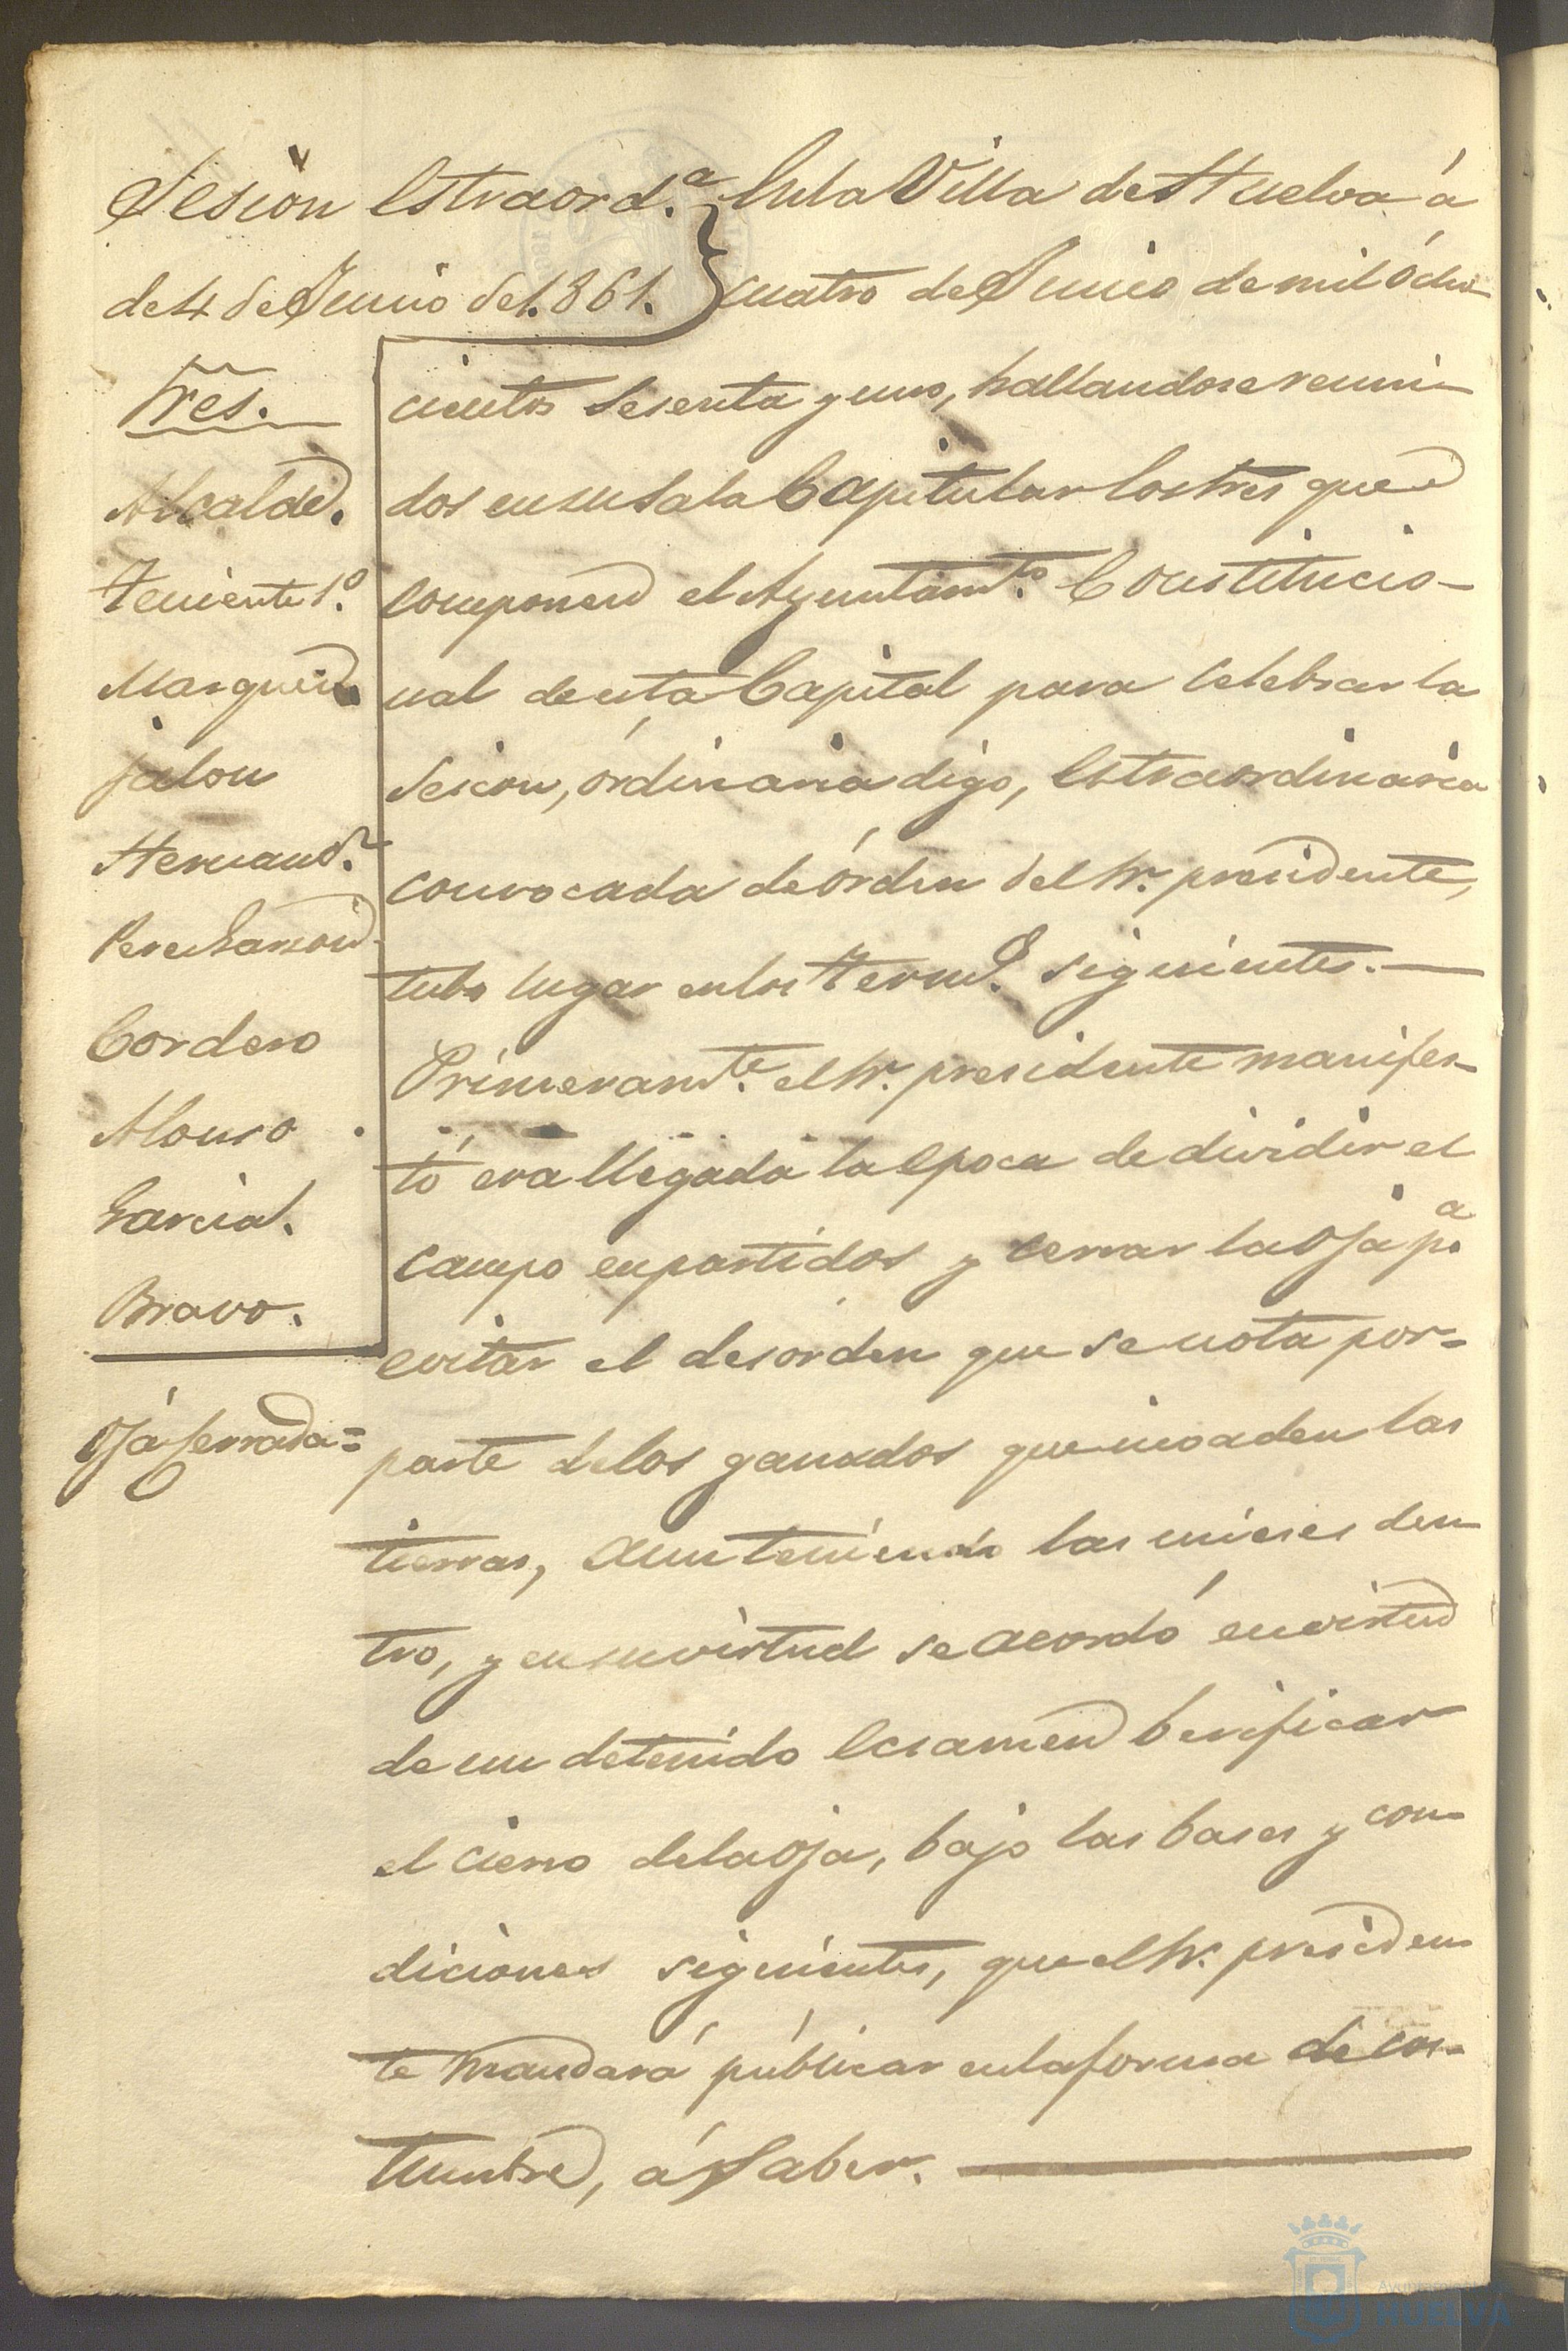 Sesion estraord.ª
de 4 de Junio de 1.861.
Sres.
Alcalde.
Teniente 1º.
Marquez
jalon
Hernand.
Perez Garzon
Cordero
Alonso
Garcia.
Bravo.
Oja serrada=
En la Villa de Huelva á
cuatro de Junio de mil ócho
cientos sesenta y uno, hallandose reuni-
dos en su Sala Capitular los Sres que
componen el Ayuntamto. Constitucio-
nal de esta Capital para celebrar la
Secion, órdinaria digo, estraordinaria
convocada de órden del Sr. presidente,
tubo lugar en los term.s siguientes.—
Primeramte. el Sr. presidente manifes-
tó era llegada la epoca de dividir el
campo en partidos y cerrar la oja pª
evitar el desorden que se nota por-
parte de los ganados que invaden las
tierras, aun teniendo las mieses den-
tro, y en su virtud se acordó en virtud
de un detenido ecsamen berificar
el cierro de la oja, bajo las bases y con-
diciones siguientes, que el Sr. presiden-
te mandará públicar en la forma de cos-
tumbre, á Saber.—
HUELVA